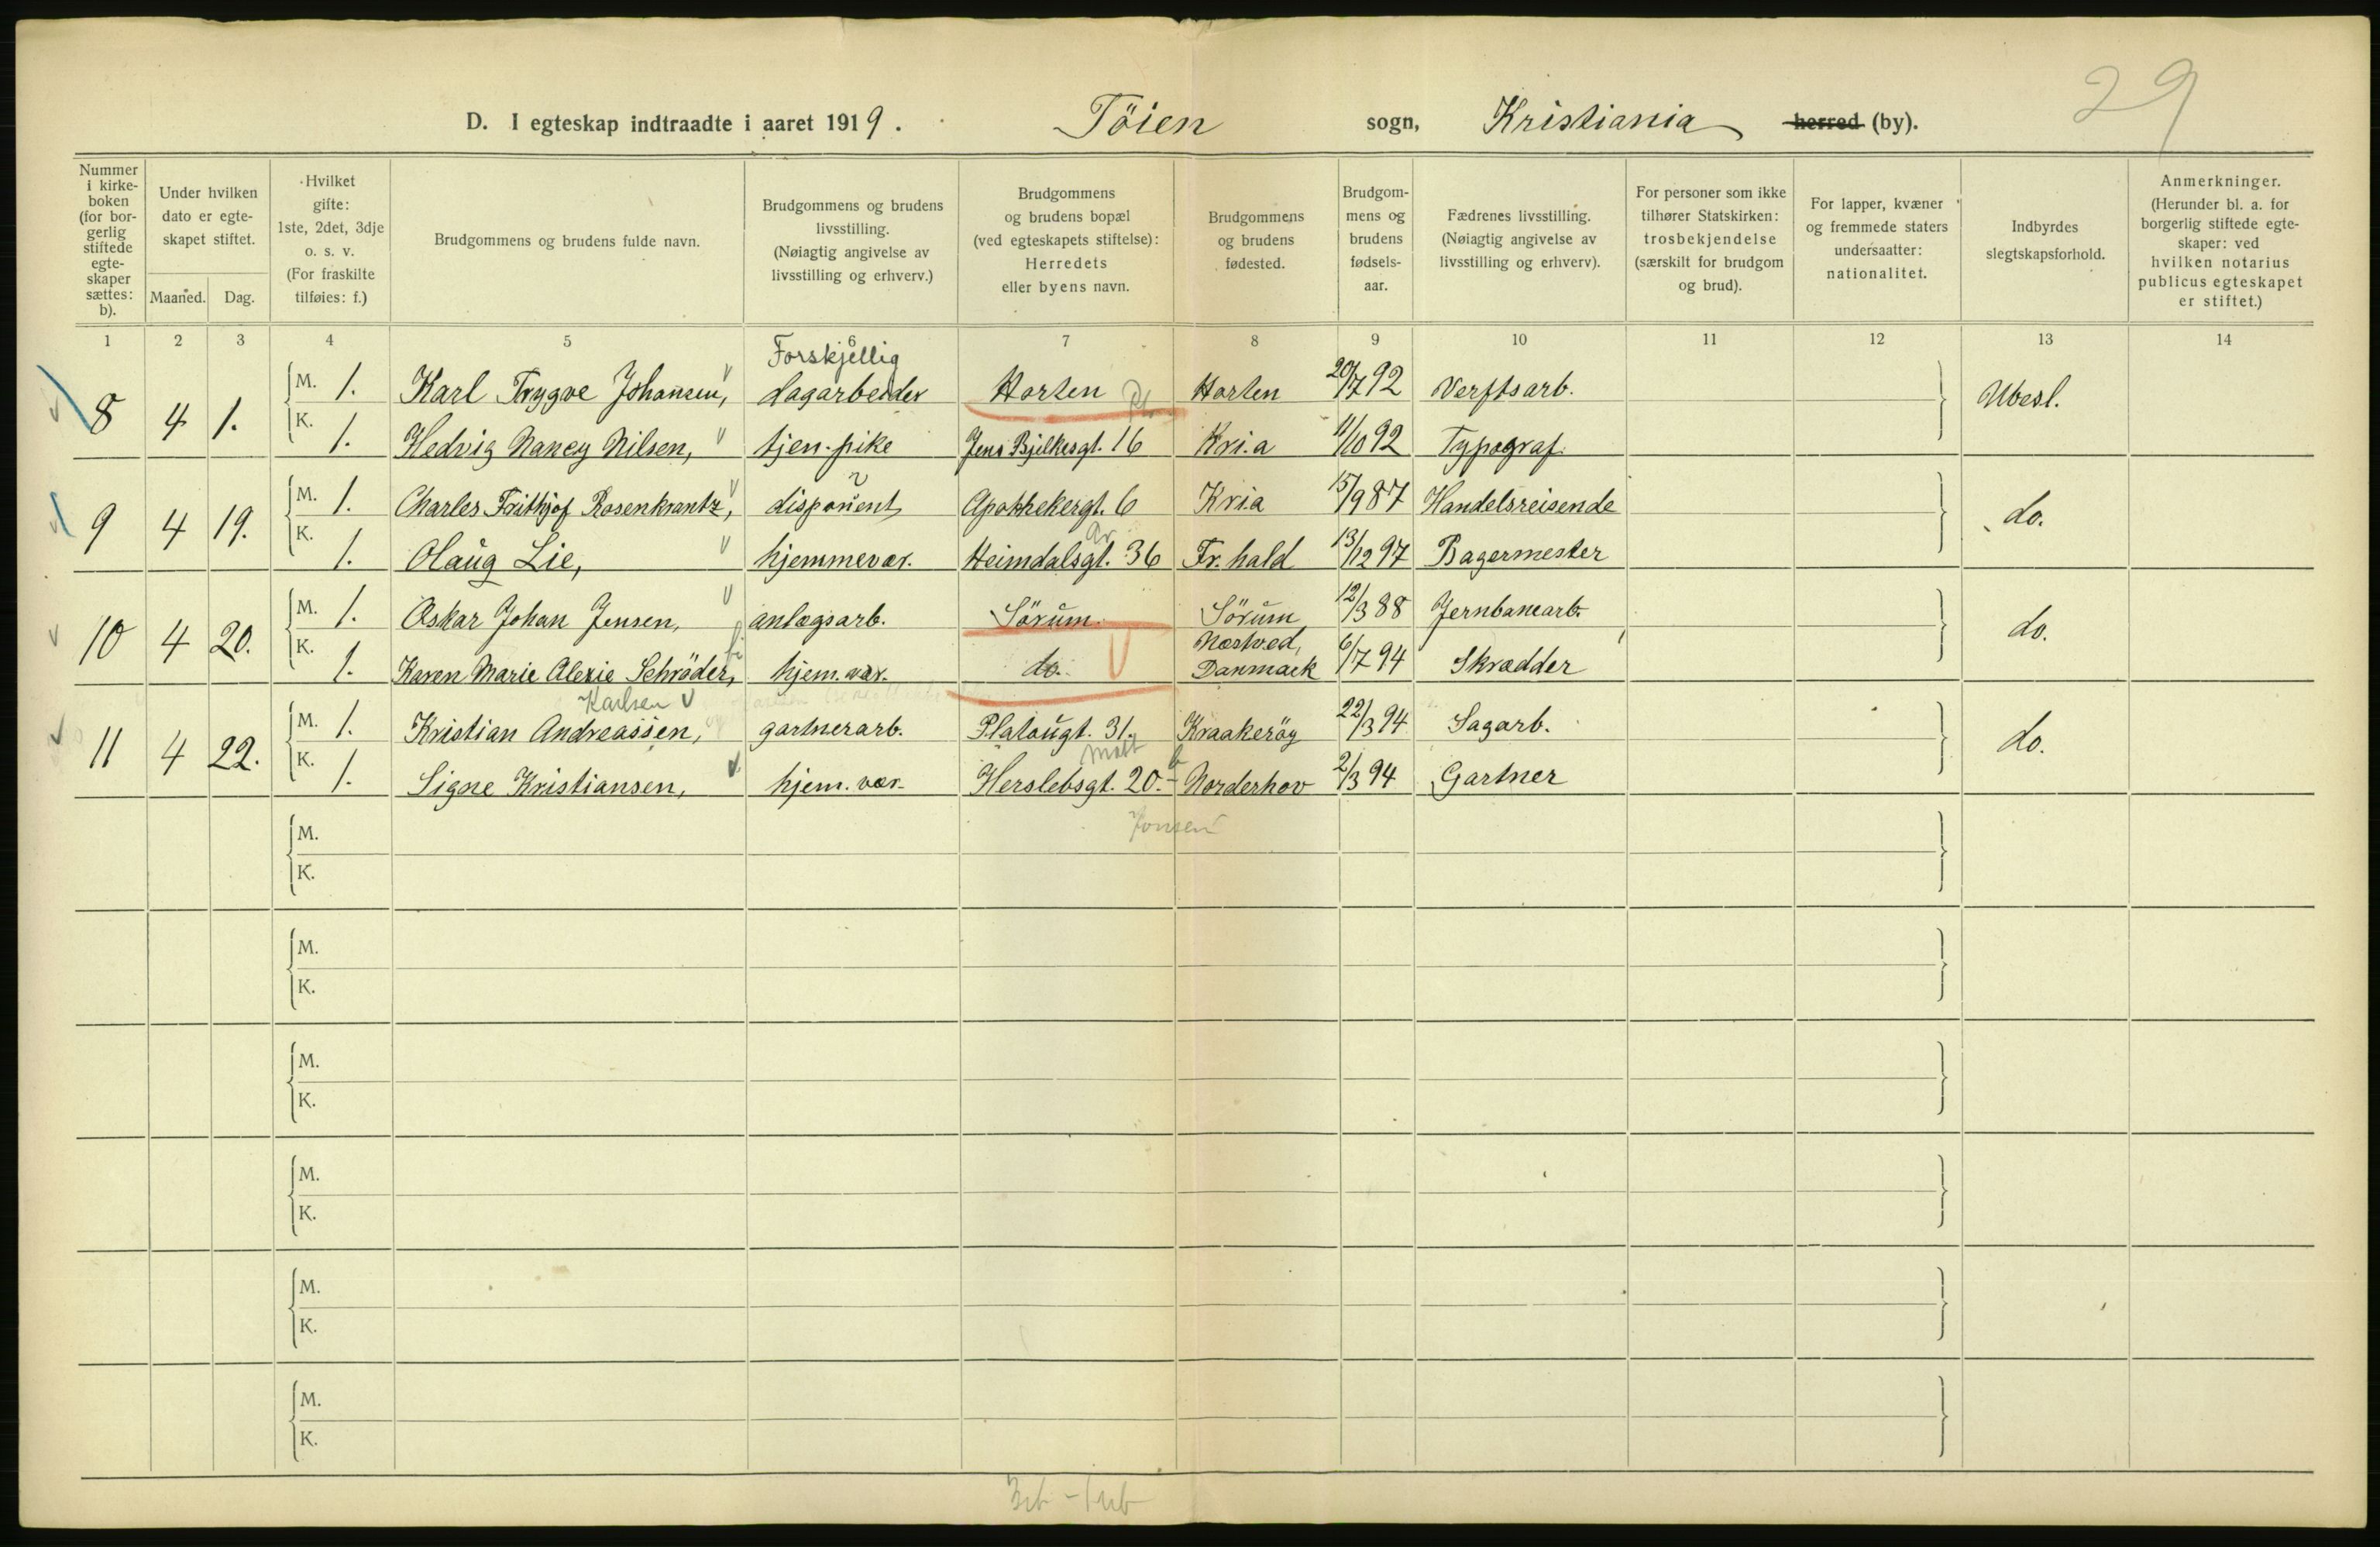 29
D. I egteskap indtraadte i aaret 1919. Töien sogn, Kristiania herred (by).
Nummer i kirke- boken (for bor- gerlig stiftede egte- skaper sættes: b).
Under hvilken dato er egte- skapet stiftet.
Maaned. Dag.
Hvilket gifte: 1ste, 2det, 3dje o. s. v. (For fraskilte tilføies: f.)
Brudgommens og brudens fulde navn.
Brudgommens og brudens livsstilling. (Nøiagtig angivelse av livsstilling og erhverv.)
Brudgommens og brudens bopæl (ved egteskapets stiftelse): Herredets eller byens navn.
Brudgommens og brudens fødested.
Brudgom- mens og brudens fødsels- aar.
Fædrenes livsstilling. (Nøiagtig angivelse av livsstilling og erhverv).
For personer som ikke tilhører Statskirken: trosbekjendelse (særskilt for brudgom og brud).
For lapper, kvæner og fremmede staters undersaatter: nationalitet.
Indbyrdes slegtskapsforhold.
Anmerkninger. (Herunder bl. a. for borgerlig stiftede egte- skaper: ved hvilken notarius publicus egteskapet er stiftet.)
1 2 3 4 5 6 7 8 9 10 11 12 13 14
Forskjellig
8 4 1. M. 1. Karl Trygve Johansen, dagarbeider Horten Horten 20/7 92 Verftsarb. Ubesl.
K. 1. Hedvig Nancy Nilsen, tjen. pike Jens Bjelkesgt. 16 Kri.a 11/10 92 Typograf.
9 4 19. M. 1. Charles Frithjof Rosenkrantz, disponent Apothekergt. 6 Kria 15/9 87 Handelsreisende do.
K. 1. Olaug Lie, hjemmevær. Heimdalsgt. 36 Fr.hald 13/12 97 Bagermester
10 4 20. M. 1. Oskar Johan Jensen, anlægsarb. Sörum. Sörum 12/3 88 Jernbanearb. do.
K. 1. Karen Marie Alexie Schröder, hjem. vær. do. Næstved, Danmark 6/7 94 Skrædder
Karlsen
11 4 22. M. 1. Kristian Andreassen, gartnerarb. Platougt. 31. Kraakeröy 22/3 94 Sagarb. do.
K. 1. Signe Kristiansen, hjem. vær. Herslebsgt. 20. b Norderhov 2/3 94 Gartner
Jonsen
M.
K.
M.
K.
M.
K.
M.
K.
M.
K.
M.
K.